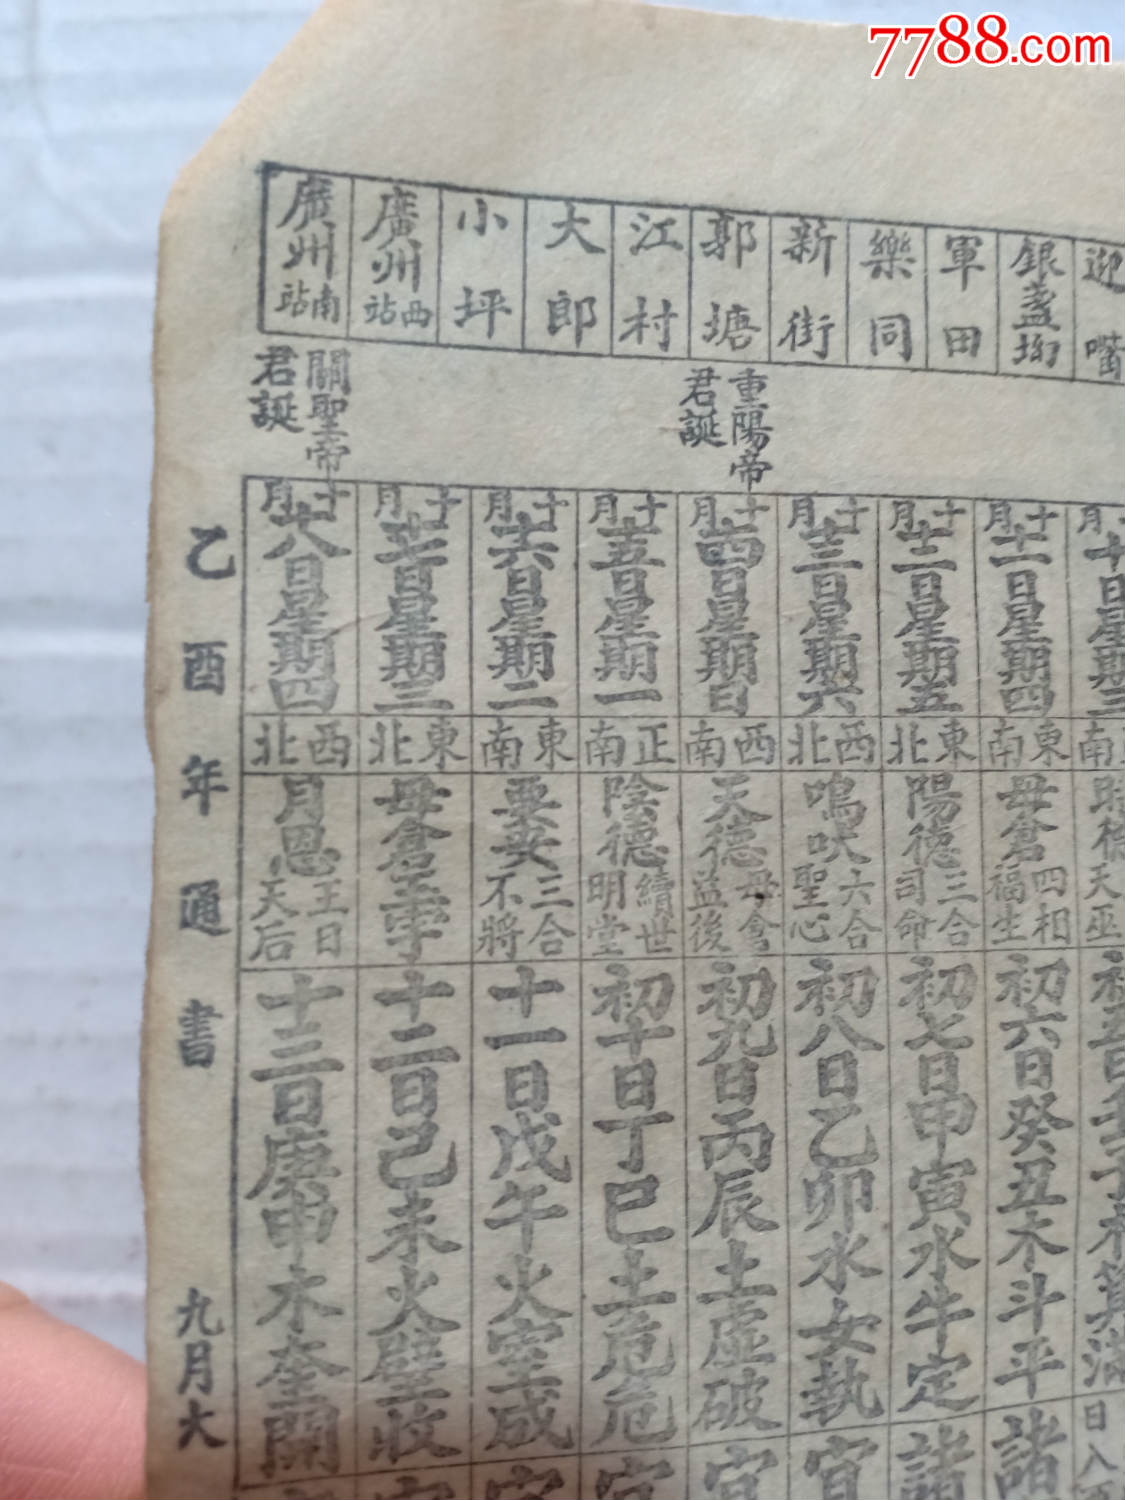 7788.com
迎嘴
銀盞坳
軍田
樂同
新街
郭塘
江村
大郎
小坪
廣州西站
廣州南站
重陽帝君誕
關聖帝君誕
十月十一日星期四
東南
母倉 四相 福生
初六日癸丑木斗平
諸
十月十二日星期五
東北
陽德 三合 司命
初七日甲寅水牛定
諸
十月十三日星期六
西北
鳴吠 六合 聖心
初八日乙卯水女執
宜
十月十四日星期日
西南
天德 母倉 益後
初九日丙辰土虛破
宜
十月十五日星期一
正南
陰德 續世 明堂
初十日丁巳土危危
宜
十月十六日星期二
東南
要安 三合 不將
十一日戊午火室成
宜
十月十七日星期三
東北
母倉玉宇
十二日己未火壁收
宜
十月十八日星期四
西北
月恩 王日 天后
十三日庚申木奎開
乙酉年通書
九月大